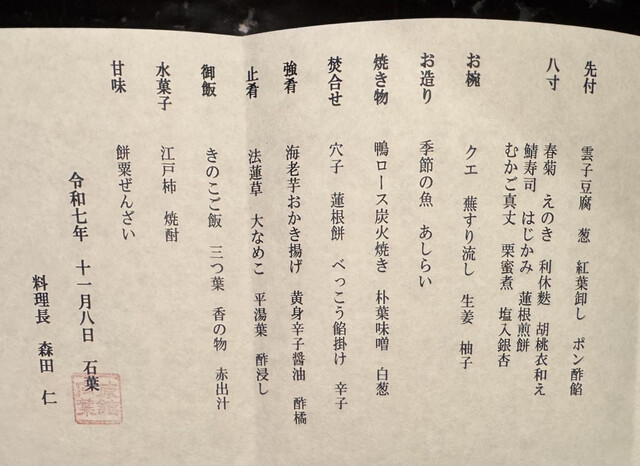 先付　雲子豆腐　葱　紅葉卸し　ポン酢餡
八寸　春菊　えのき　利休麩　胡桃衣和え
鯖寿司　はじかみ　蓮根煎餅
むかご真丈　栗蜜煮　塩入銀杏
お椀　クエ　蕪すり流し　生姜　柚子
お造り　季節の魚　あしらい
焼き物　鴨ロース炭火焼き　朴葉味噌　白葱
焚合せ　穴子　蓮根餅　べっこう餡掛け　辛子
強肴　海老芋おかき揚げ　黄身辛子醤油　酢橘
止肴　法蓮草　大なめこ　平湯葉　酢浸し
御飯　きのこご飯　三つ葉　香の物　赤出汁
水菓子　江戸柿　焼酎
甘味　餅粟ぜんざい
令和七年　十一月八日　石葉
料理長　森田　仁